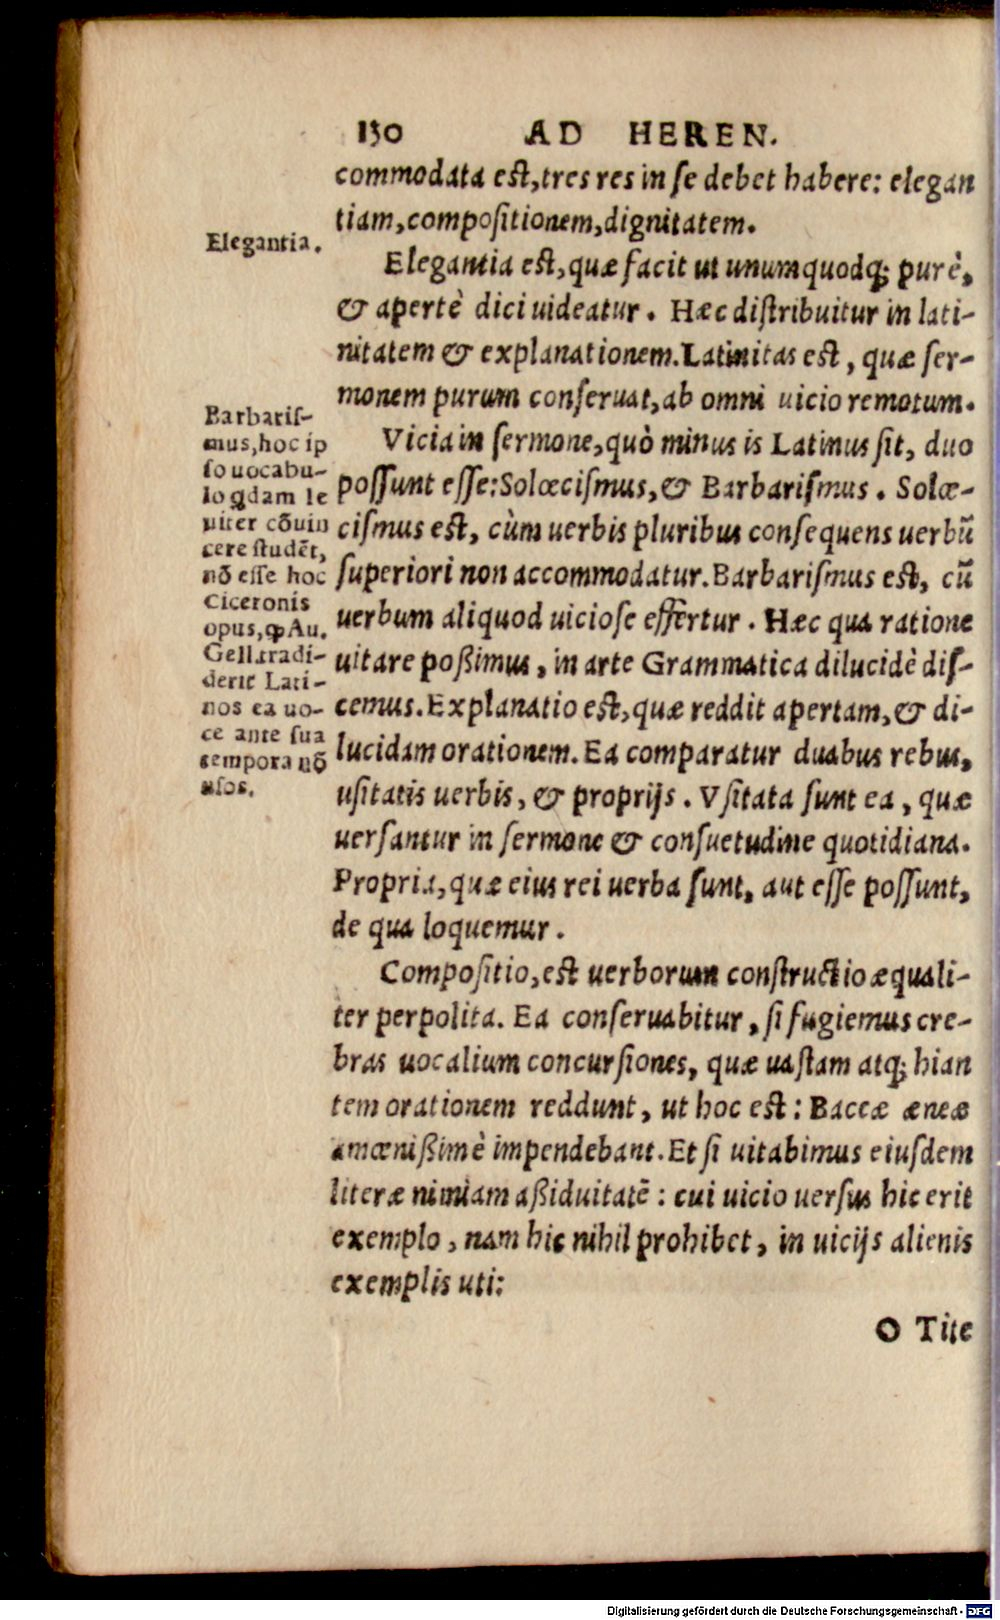 130 AD HEREN.
commodata est, tres res in se debet habere: elegan
tiam, compositionem, dignitatem.
Elegantia.
Elegantia est, quæ facit ut unumquodq; purè,
& apertè dici uideatur. Hæc distribuitur in lati-
nitatem & explanationem. Latinitas est, quæ ser-
monem purum conseruat, ab omni uicio remotum.
Vicia in sermone, quò minus is Latinus sit, duo
possunt esse: Solœcismus, & Barbarismus. Solœ-
cismus est, cùm uerbis pluribus consequens uerbũ
superiori non accommodatur. Barbarismus est, cũ
uerbum aliquod uiciose effertur. Hæc qua ratione
uitare poßimus, in arte Grammatica dilucidè dis-
cemus. Explanatio est, quæ reddit apertam, & di-
lucidam orationem. Ea comparatur duabus rebus,
usitatis uerbis, & proprijs. Vsitata sunt ea, quæ
uersantur in sermone & consuetudine quotidiana.
Propria, quæ eius rei uerba sunt, aut esse possunt,
de qua loquemur.
Barbaris-
mus, hoc ip
so uocabu-
lo q̃dam le
uiter cõuin
cere studẽt,
nõ esse hoc
Ciceronis
opus, ꝙ Au.
Gell. tradi-
derit Lati-
nos ea uo-
ce ante sua
tempora nõ
usos.
Compositio, est uerborum constructio æquali-
ter perpolita. Ea conseruabitur, si fugiemus cre-
bras uocalium concursiones, quæ uastam atq; hian
tem orationem reddunt, ut hoc est: Baccæ æneæ
amœnißimè impendebant. Et si uitabimus eiusdem
literæ nimiam aßiduitatẽ: cui uicio uersus hic erit
exemplo, nam hic nihil prohibet, in uicijs alienis
exemplis uti:
O Tite
Digitalisierung gefördert durch die Deutsche Forschungsgemeinschaft - DFG